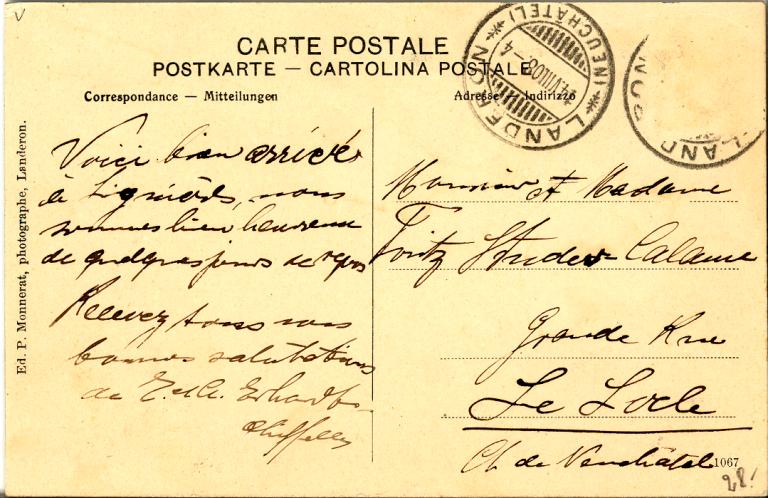 CARTE POSTALE
POSTKARTE — CARTOLINA POSTALE
Correspondance — Mitteilungen
Adresse — Indirizzo
LANDERON
(NEUCHÂTEL)
LAND
Ed. P. Monnerat, photographe, Landeron.
Voici bien arrivés
à Lignières, nous
sommes bien heureux
de quelques jours de repos
Recevez tous nos
bonnes salutations
de E. et A.
Monsieur et Madame
Fritz Studer Calame
Grande Rue
Le Locle
Ct. de Neuchâtel
1067
28.